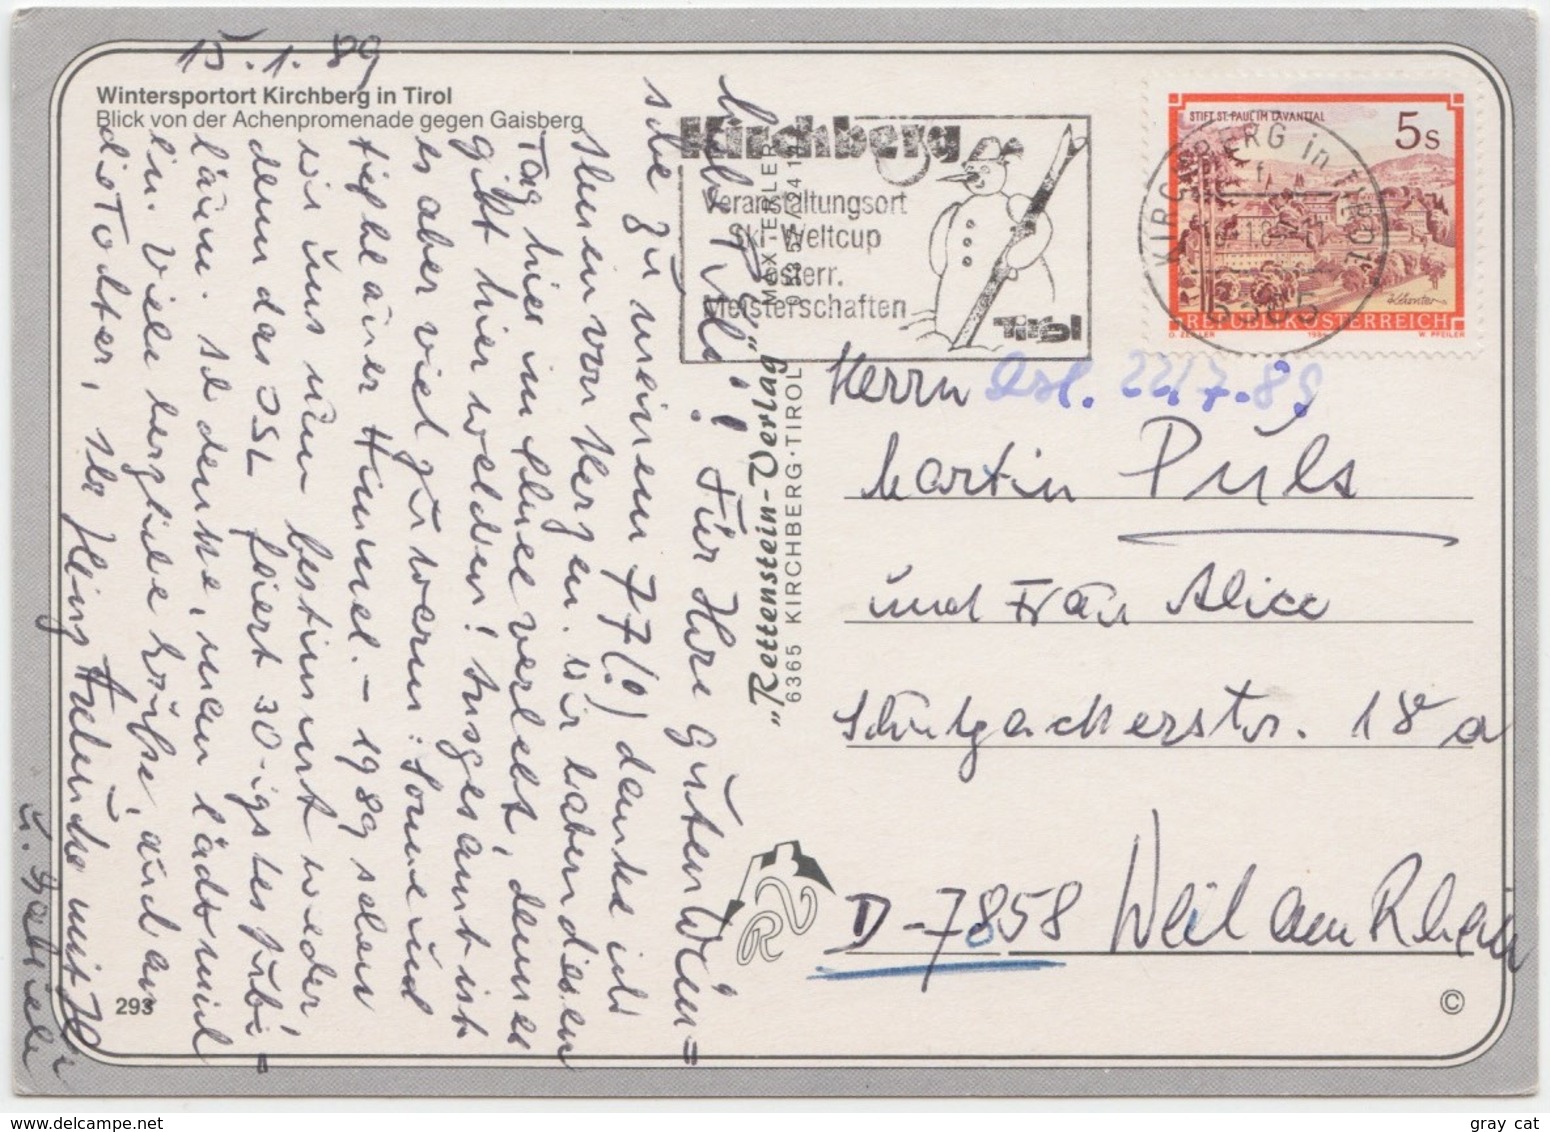 15.1.89
Wintersportort Kirchberg in Tirol
Blick von der Achenpromenade gegen Gaisberg
Lieber Puls! Für Ihre guten Wün=
sche zu meinem 77(!) danke ich
Ihnen von Herzen. Wir haben diesen
Tag hier im Schnee verlebt, denn es
gibt hier welchen! Insgesamt ist
es aber viel zu warm: Sonne und
tiefblauer Himmel. - 1989 sehen
wir uns nun bestimmt wieder,
denn das JSL feiert 30-igstes Jubi-
läum. Ich denke, man lädt mich
ein. Viele herzliche Grüße, auch an
die Tochter, Ihr Heinz
u. Gabriele
Kirchberg
Veranstaltungsort
Ski-Weltcup
österr.
Meisterschaften
Tirol
MAX ERLER
"Rettenstein-Verlag"
6365 KIRCHBERG · TIROL
STIFT ST. PAUL IM LAVANTTAL
5 s
REPUBLIK ÖSTERREICH
O. ZEILLER
W. PFEILER
KIRCHBERG in TIROL
6365
Herrn
22/7.89
Martin Puls
und Frau Alice
18 a
D-7858 Weil am Rhein
293
©
gray cat